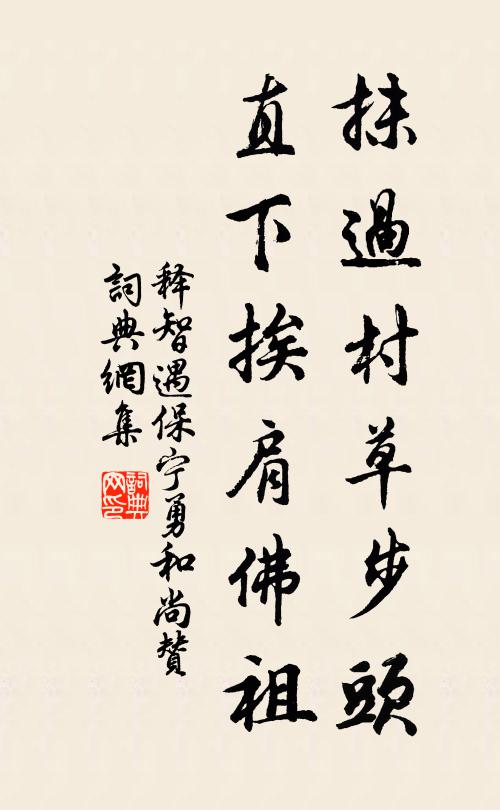 抹過村草步頭
直下挨肩佛祖
释智遇保宁勇和尚贊
詞典網集
詞典網印